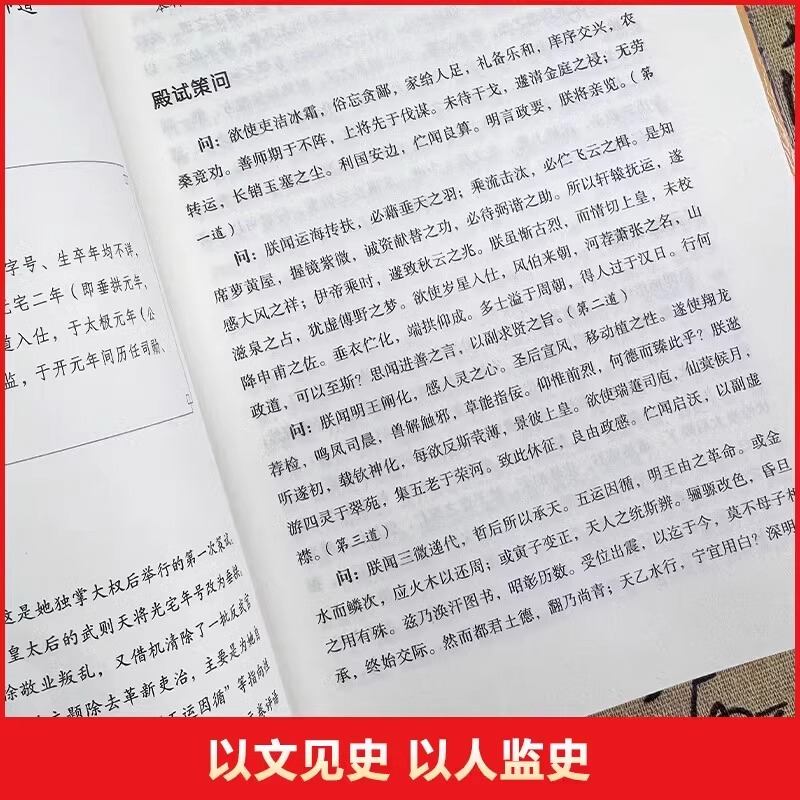 字号、生卒年均不详,
光宅二年(即垂拱元年,
道入仕,于太极元年(公
监,于开元年间历任司勋、
这是她独掌大权后举行的第一次策试,
皇太后的武则天将光宅年号改为垂拱,
徐敬业叛乱,又借机清除了一批反武官
主题除去革新吏治,主要是为她自
五运因循”等指向性
殿试策问
问:欲使吏洁冰霜,俗忘贪鄙,家给人足,礼备乐和,庠序交兴,农
桑竞劝。善师期于不阵,上将先于伐谋。未待干戈,遽清金庭之祲;无劳
转运,长销玉塞之尘。利国安边,伫闻良算。明言政要,朕将亲览。(第
一道)
问:朕闻运海抟扶,必藉垂天之羽;乘流击汰,必伫飞云之楫。是知
席萝黄屋,握镜紫微,诚资献替之功,必待弼谐之助。所以轩辕抚运,遂
感大风之祥;伊帝乘时,遂致秋云之兆。朕虽惭古烈,而情切上皇,未校
滋泉之占,犹虚傅野之梦。欲使岁星入仕,风伯来朝,河荐萧张之名,山
降申甫之佐。垂衣伫化,端拱仰成。多士溢于周朝,得人过于汉日。行何
政道,可以至斯?思闻进善之言,以副求贤之旨。(第二道)
问:朕闻明王阐化,感人灵之心。圣后宣风,移动植之性。遂使翔龙
荐检,鸣凤司晨,兽解触邪,草能指佞。仰惟前烈,何德而臻此乎?朕逖
听遂初,载钦神化,每欲反斯莸薄,景彼上皇。欲使瑞蓂司庖,仙荚候月,
游四灵于翠苑,集五老于荣河。致此休征,良由政感。伫闻启沃,以副虚
襟。(第三道)
问:朕闻三微递代,哲后所以承天。五运因循,明王由之革命。或金
水而鳞次,应火木以还周;或寅子变正,天人之统斯辨。骊骃改色,昏旦
之用有殊。兹乃涣汗图书,昭彰历数。受位出震,以迄于今,莫不母子相
承,终始交际。然而都君土德,翻乃尚青;天乙水行,宁宜用白?深明
以文见史 以人监史